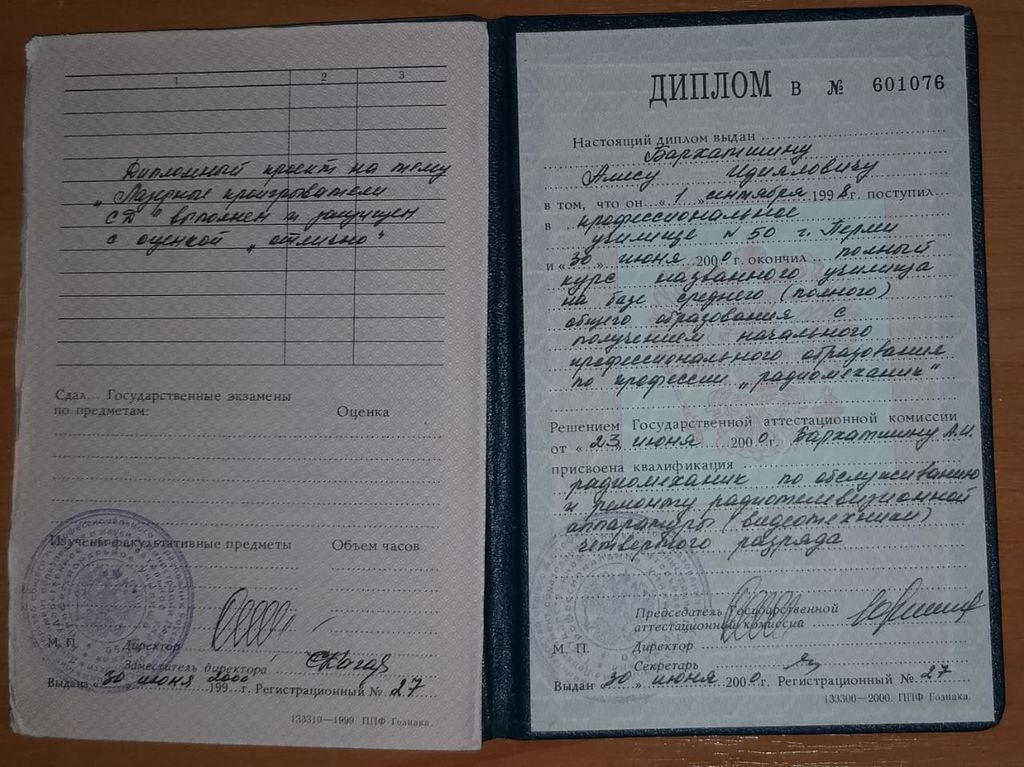 1 2 3
Дипломный проект на тему
"Лазерные проигрыватели
СД" выполнен и защищен
с оценкой "отлично"
Сдал... Государственные экзамены
по предметам: Оценка
Изучены факультативные предметы Объем часов
М. П. Директор
Заместитель директора
Выдана «30 июня 2000 199 г. Регистрационный № 27
133310—1999. ППФ Гознака.
ДИПЛОМ В № 601076
Настоящий диплом выдан
Бархатшину
Алису
в том, что он «1» сентября 1998 г. поступил
в профессиональное
училище № 50 г. Перми
и «30» июня 2000 г. окончил полный
курс названного училища
на базе среднего (полного)
общего образования с
получением начального
профессионального образования
по профессии "радиомеханик"
Решением Государственной аттестационной комиссии
от «23» июня 2000 г. Бархатшину А.И.
присвоена квалификация
радиомеханик по обслуживанию
и ремонту радиотелевизионной
аппаратуры (видеотехники)
четвертого разряда
Председатель Государственной
аттестационной комиссии
М. П. Директор
Секретарь
Выдан «30» июня 2000 г. Регистрационный № 27
133300—2000. ППФ Гознака.